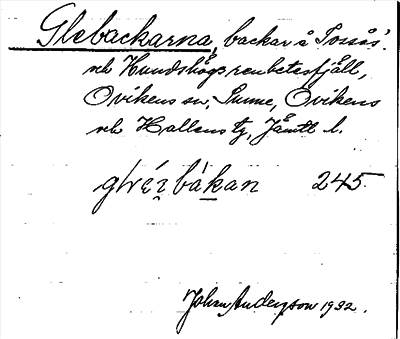 Glebackarna, backar å Tossås'.
och Hundshögs renbetesfjäll,
Ovikens sn, Sunne, Ovikens
och Hallens tg, Jämtl l.
bákan 245
Johan Anderson 1932.